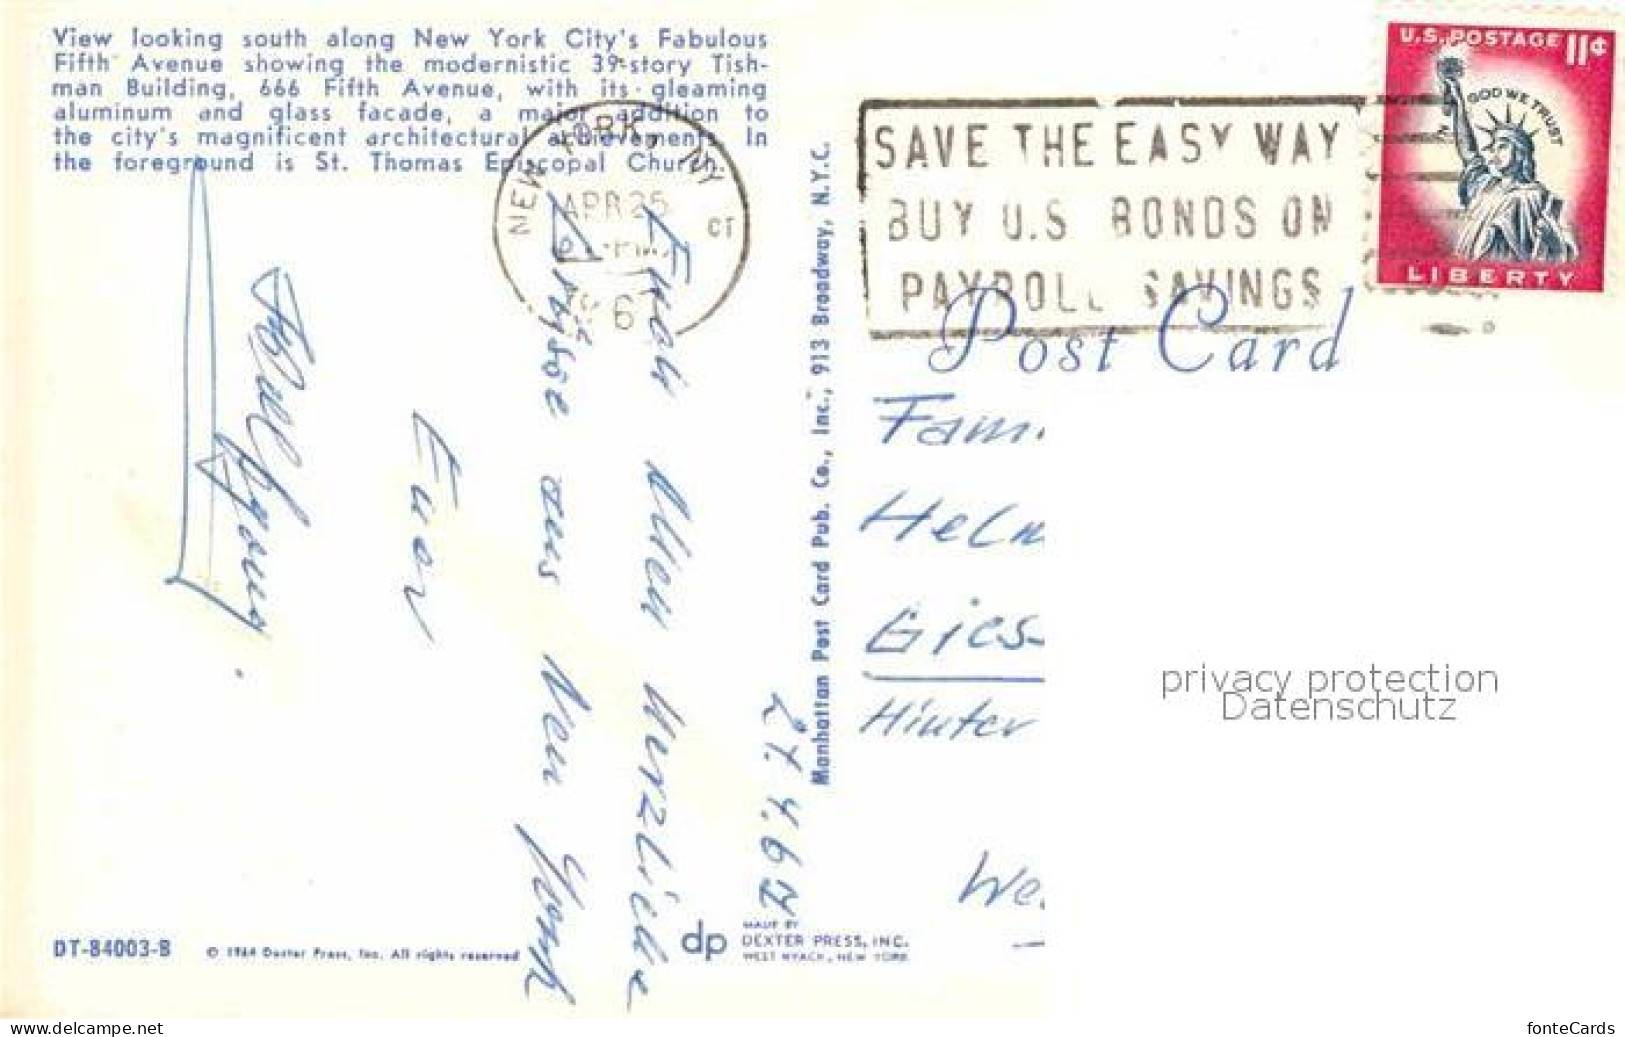 View looking south along New York City's Fabulous
Fifth Avenue showing the modernistic 39-story Tish-
man Building, 666 Fifth Avenue, with its gleaming
aluminum and glass facade, a major addition to
the city's magnificent architectural achievements. In
the foreground is St. Thomas Episcopal Church.
NEW YORK, NY
APR 25
PM
6
SAVE THE EASY WAY
BUY U.S. BONDS ON
PAYROLL SAVINGS
U.S. POSTAGE 11¢
IN GOD WE TRUST
LIBERTY
Post Card
Manhattan Post Card Pub. Co., Inc., 913 Broadway, N.Y.C.
Allen Herzliche
aus New York
Euer
Fam.
Helm
Gies-
Hinter
We.
privacy protection
Datenschutz
DT-84003-B
© 1964 Dexter Press, Inc. All rights reserved
dp
MADE BY
DEXTER PRESS, INC.
WEST NYACK, NEW YORK
www.delcampe.net
fonteCards